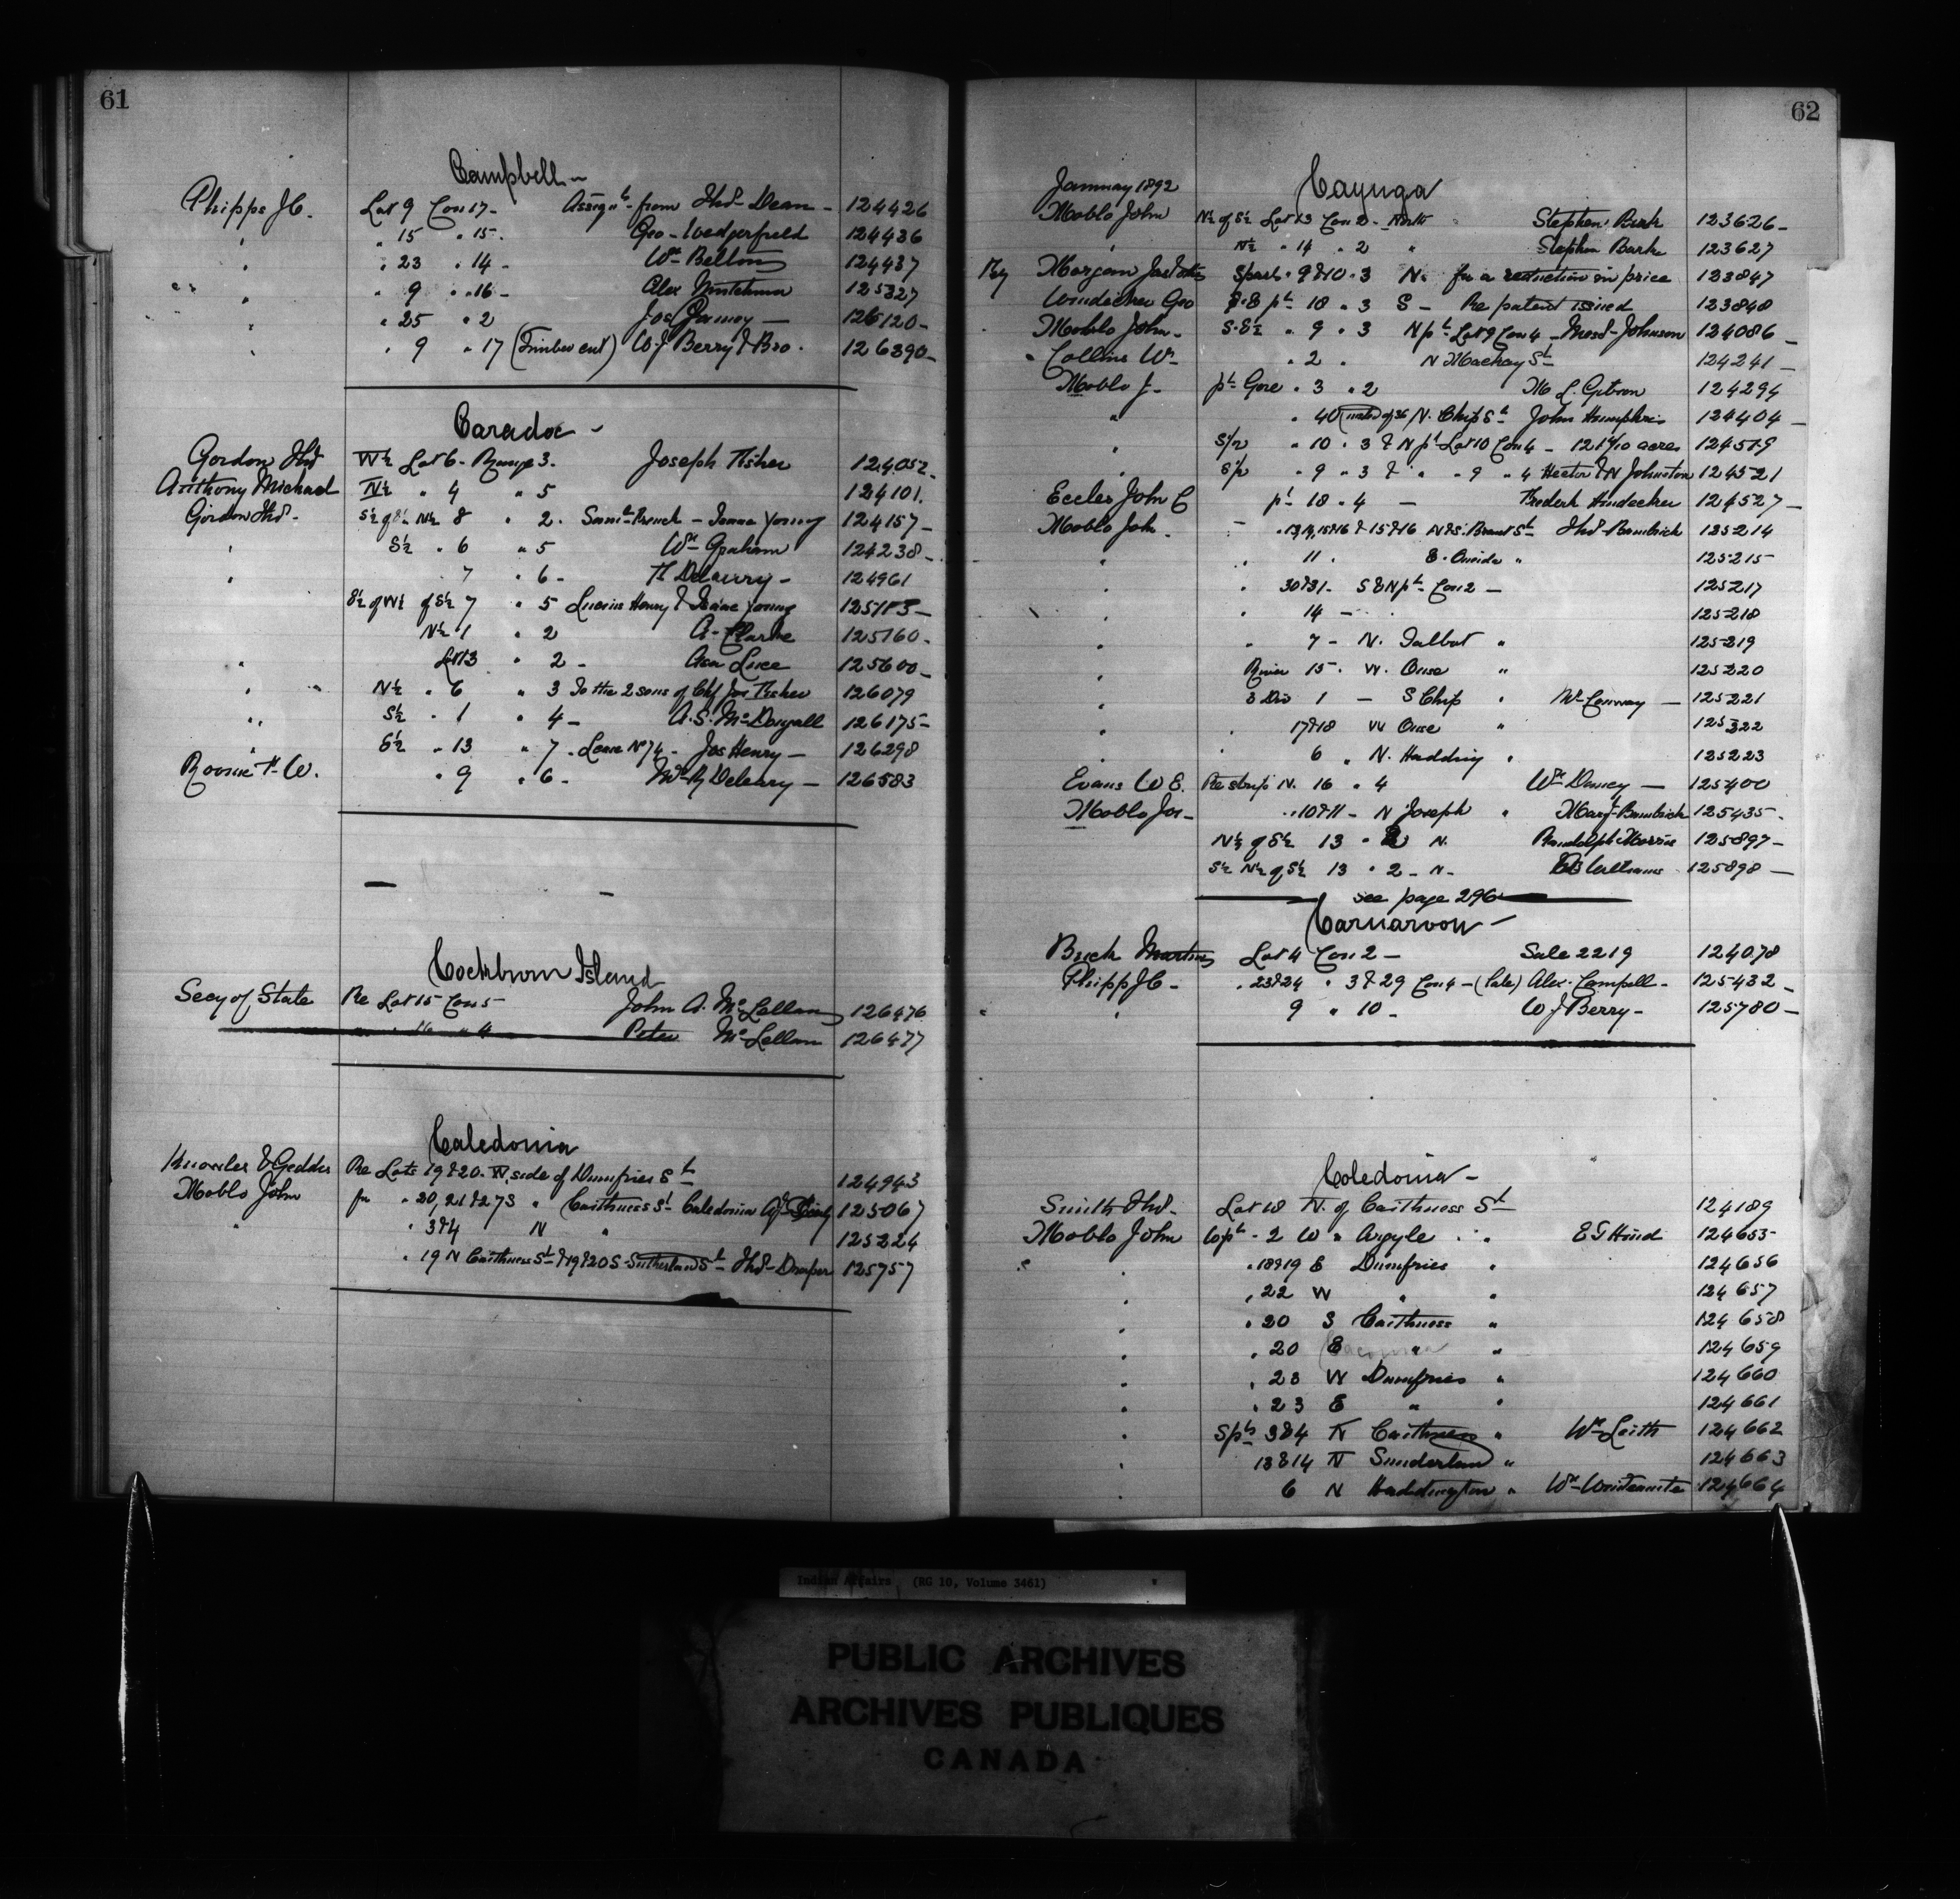 61
Campbell -
Phipps J.C. Lot 9 Con 17 - Assignt from Thos Dean - 124426
" " 15 " 15 - Geo - Wedgerfield 124436
" " 23 " 14 - Wm Bellow 124437
" " 9 " 16 - Alex 125327
" " 25 " 2 Jos 126120 -
" " 9 " 17 (Timber cut) W J Berry & Bro. 126390 -
Caradoc -
Gordon Thos W½ Lot 6 - Range 3. Joseph Fisher 124052 -
Anthony Michael N½ " 4 " 5 124101.
Gordon Thos - S½ of N½ 8 " 2. Saml French - Isaac Young 124157 -
" S½ " 6 " 5 Wm Graham 124238 -
" 7 " 6 - Deleury - 124961
of W½ of S½ 7 " 5 Henry & Isaac Young 125153 -
N½ 1 " 2 A - Clarke 125160 -
" Lot 13 " 2 - Luce 125600 -
" " N½ " 6 " 3 To the 2 sons of Chf Jos Fisher 126079
" S½ " 1 " 4 - A. S. McDougall 126175 -
" S½ " 13 " 7 - Lease No 74 - Jos Henry - 126298
W. " 9 " 6 - Deleary - 126583
Cockburn Island
Secy of State Re Lot 15 Con 5 John A. McLellan 126476
" 16 " 4 Peter McLellan 126477
Caledonia
Knowles & Geddes Re Lots 19 & 20 - W. side of Dumfries St 124943
Moblo John " 20, 21 & 273 " Caithness St Caledonia 125067
" " 3 & 4 N " 125224
" 19 N Caithness St & 19 & 20 S - Sutherland St Thos - Draper 125757
62
January 1892 Cayuga
Moblo John N½ of S½ Lot 13 Con 2 - North Stephen Burk 123626 -
" N½ " 14 " 2 " Stephen Burk 123627
Morgan Spart " 9 & 10 " 3 N. for a reduction in price 123847
Windecker Geo pt 18 " 3 S - Re patent issued 123848
Moblo John - S.S½ " 9 " 3 N pt Lot 9 Con 4 - Johnson 124086 -
" Collins Wm " 2 " N Mackay St - 124241 -
Moblo J - pt Gore " 3 " 2 M L. Gibson 124294
" " 40 of 36 N. Chip St John Humphries 124404 -
" S/2 " 10 " 3 & N pt Lot 10 Con 4 - acres 124519
" S/p " 9 " 3 & " " 9 " 4 Hector & N Johnston 124521
Eccles John C pt 18 " 4 - 124527 -
Moblo Joh . " 13, 14, 15 & 16 & 15 & 16 N & S. Brant St Thos - Bambrick 125214
" 11 " E. Oneida " 125215
" " 30 & 31 - S & N pt - Con 2 - 125217
" " 14 - 125218
" " 7 - N. Talbot " 125219
" River 15 - W. Ouse " 125220
" 3 Div 1 - S Chip " Wm Conway - 125221
" 17 & 18 W Ouse " 125222
" 6 " N. Hadding " 125223
Evans W E. Re strip N. 16 " 4 Wm 125400
Moblo Jos - " 10 & 11 - N Joseph " Mary - Bambrick 125435 -
N½ of S½ 13 " 2 N. Randolph Morris 125897 -
S½ N½ of S½ 13 " 2 - N - Williams 125898 -
see page 296
Carnarvon -
Buck Martin Lot 4 Con 2 - Sale 2219 124078
Phipps J C - " 23 & 24 " 3 & 29 Con 4 - (Sale) Alex - Campell - 125432 -
" " 9 " 10 - W J Berry - 125780 -
Caledonia -
Smith Thos - Lot 18 N. of Caithness St 124189
Moblo John 2 W " Argyle " " E G Hind 124655 -
" " 18 & 19 E Dumfries " 124656
" " 22 W " " 124657
" " 20 S Caithness " 124658
" " 20 E " " 124659
" " 23 W Dumfries " 124660
" " 23 E " " 124661
" Spt 3 & 4 N Caithness " Wm Leith 124662
" 13 & 14 N Sunderland " 124663
" 6 N Haddington " Wm 124664
Indian Affairs (RG 10, Volume 3461)
PUBLIC ARCHIVES
ARCHIVES PUBLIQUES
CANADA